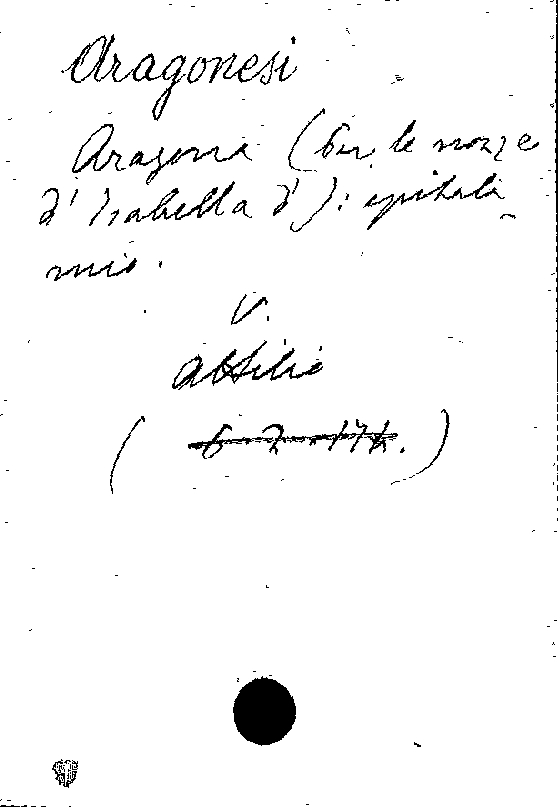 Aragonesi
Aragona (Per le nozze
d' Isabella d'): epitala
mio.
V.
Attilio
( 6-7-174. )